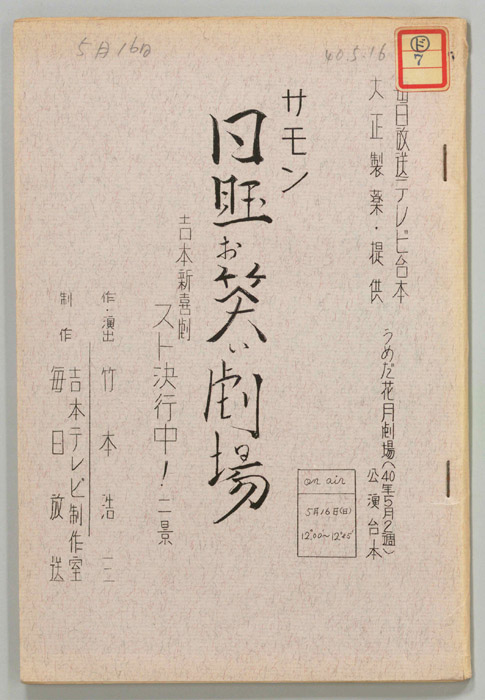 5月16日
40.5.16
㋣
7
毎日放送テレビ台本
大正製薬・提供
うめだ花月劇場(40年5月2週)
公演台本
サモン
日曜お笑い劇場
吉本新喜劇
スト決行中!・二景
作・演出 竹本浩三
制作 吉本テレビ制作室
毎日放送
on air
5月16日(日)
12°00~12°45'